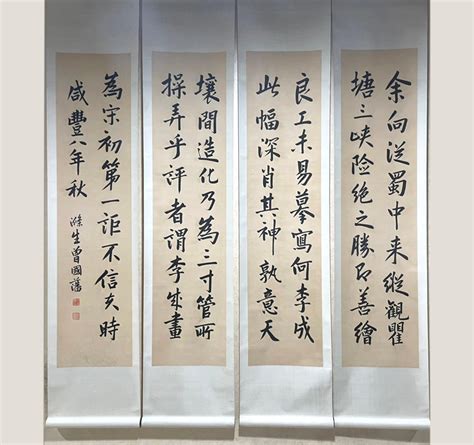 余向從蜀中来縱觀瞿
塘三峡险絶之勝即善繪
良工未易摹寫何李成
此幅深肖其神孰意天
壤間造化乃為三寸管所
操弄乎評者謂李成畫
為宋初第一詎不信夫時
咸豐八年秋
滌生曾國藩